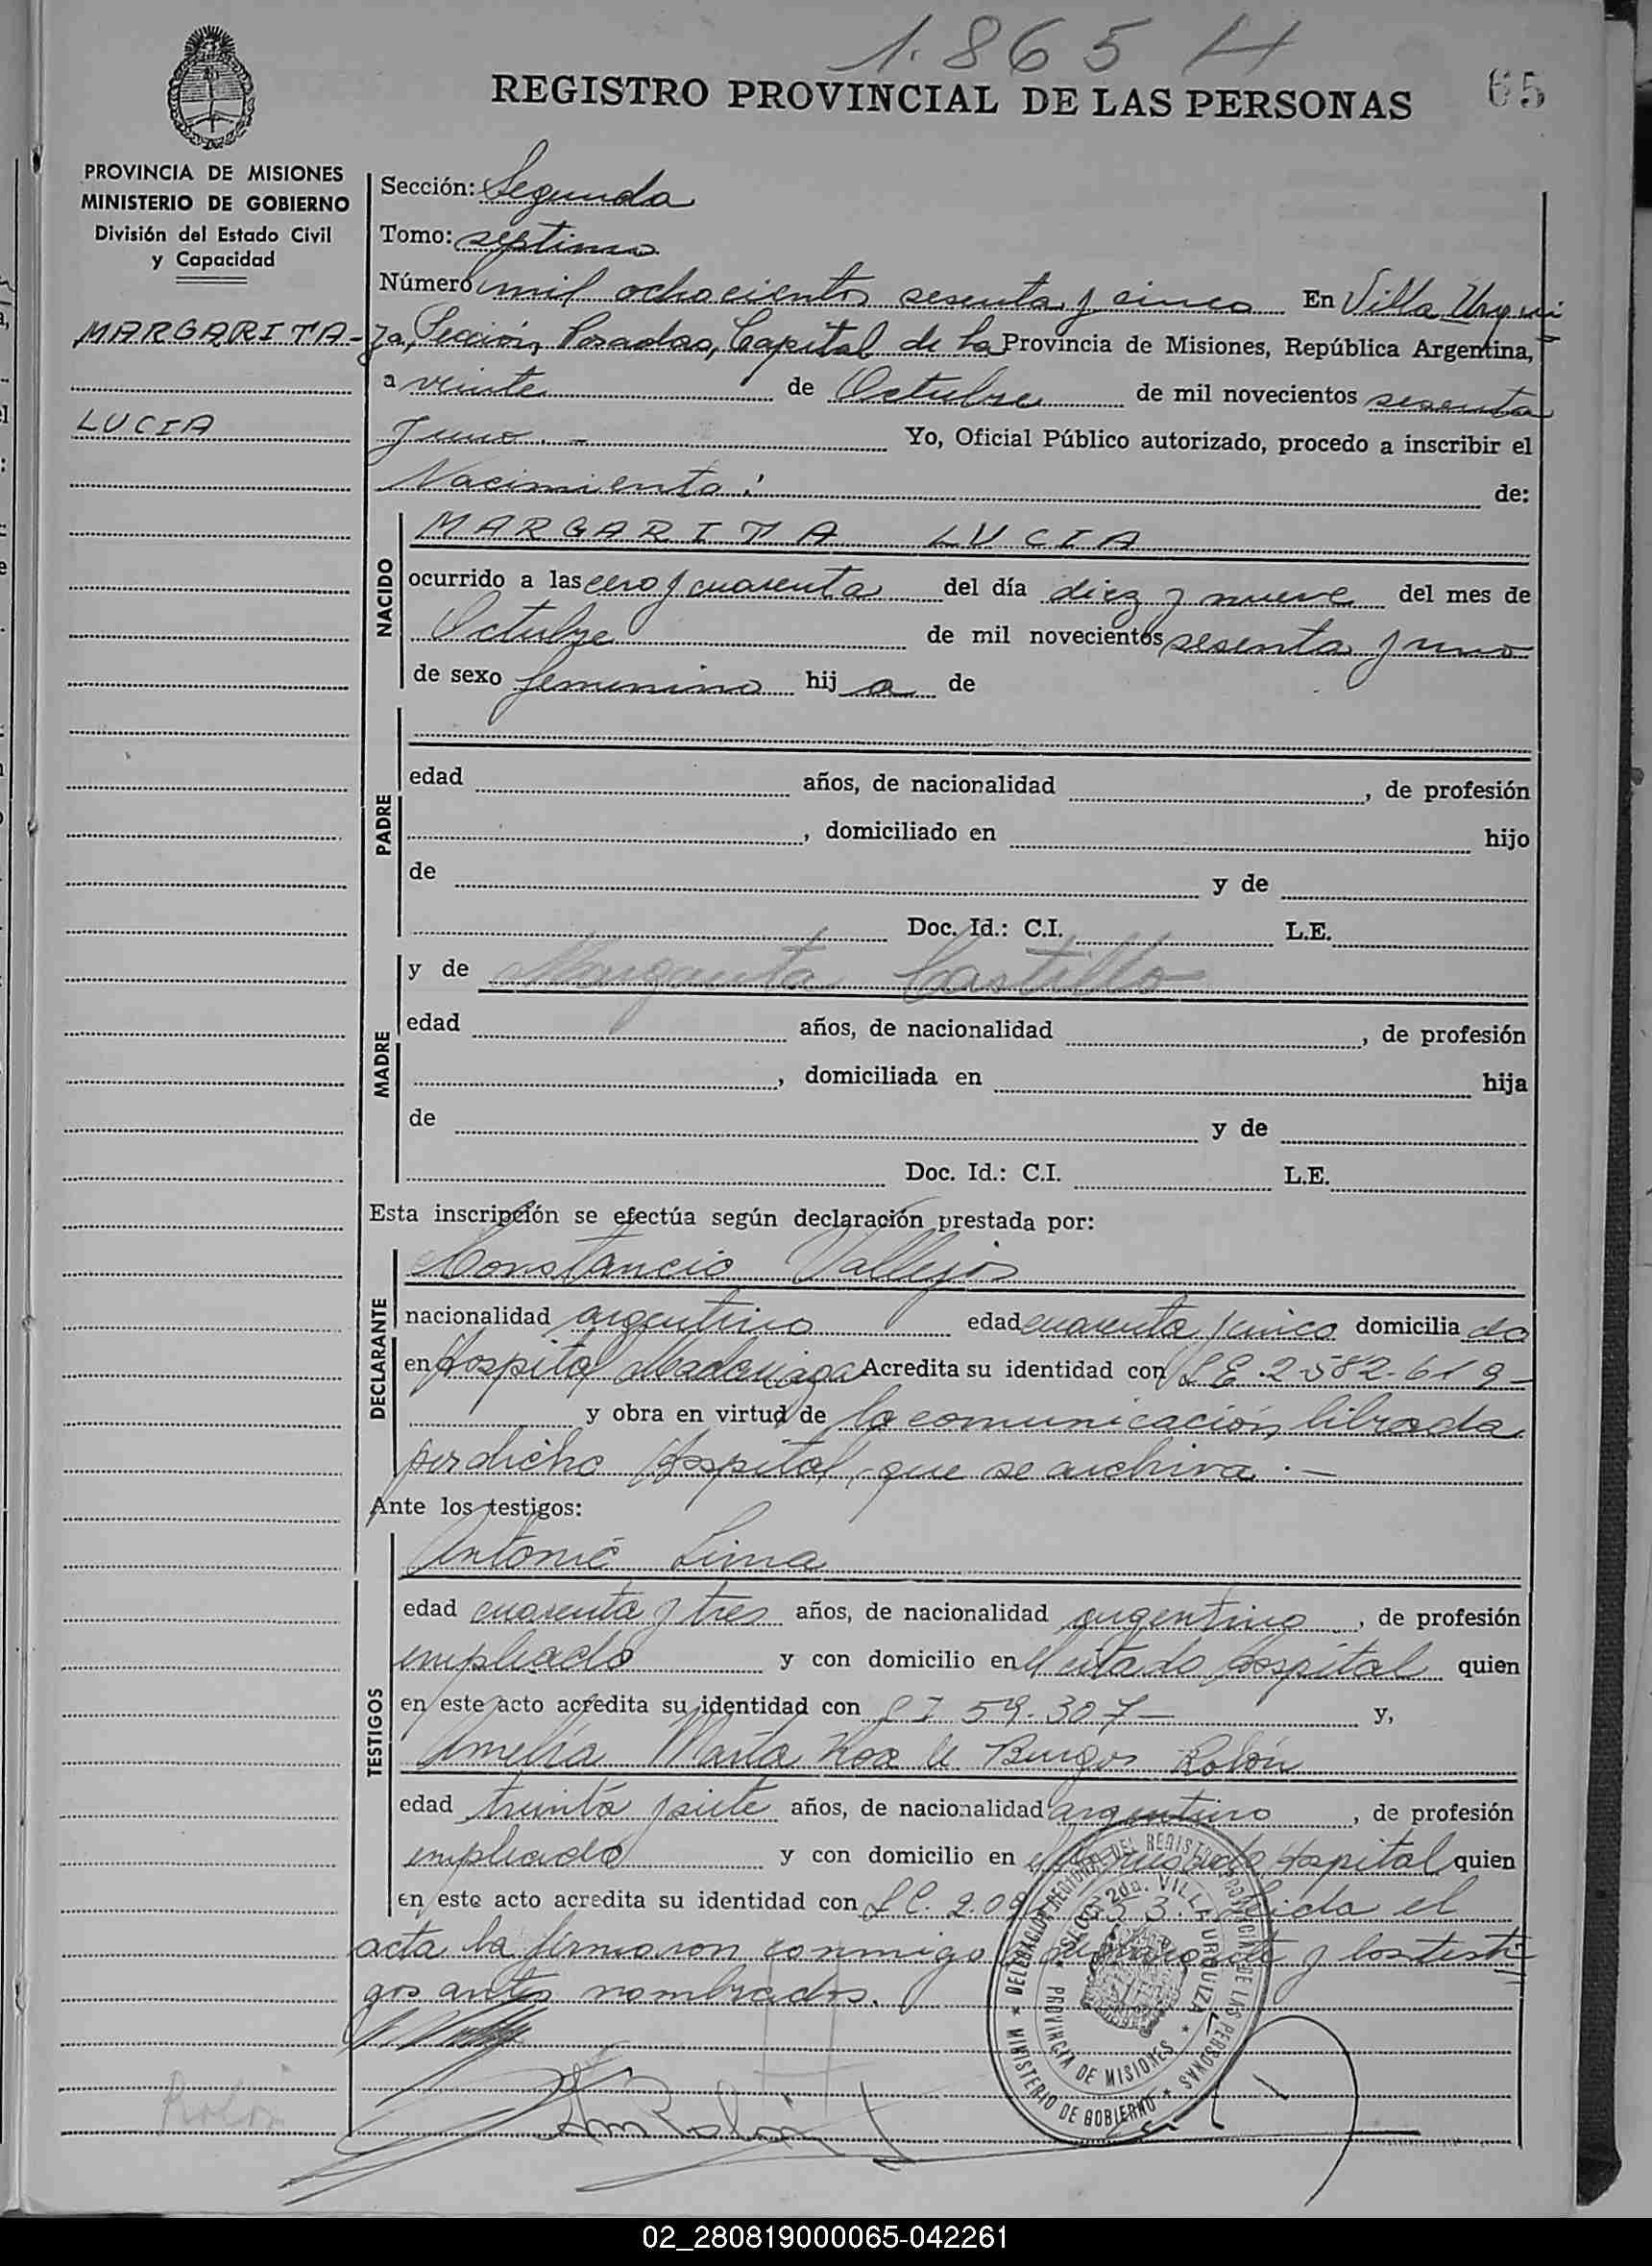 1.865 H
REGISTRO PROVINCIAL DE LAS PERSONAS
65
PROVINCIA DE MISIONES
MINISTERIO DE GOBIERNO
División del Estado Civil
y Capacidad
MARGARITA-
LUCIA
Sección: Segunda
Tomo: septimo
Número mil ochocientos sesenta y cinco En Villa Urqui
za, Sección, Posadas, Capital de la Provincia de Misiones, República Argentina,
a veinte de Octubre de mil novecientos sesenta
y uno.- Yo, Oficial Público autorizado, procedo a inscribir el
Nacimiento: de:
NACIDO
MARGARITA LUCIA
ocurrido a las cero y cuarenta del día diez y nueve del mes de
Octubre de mil novecientos sesenta y uno
de sexo femenino hij a de
PADRE
edad años, de nacionalidad , de profesión
, domiciliado en hijo
de y de
Doc. Id.: C.I. L.E.
MADRE
y de Margarita Castillo
edad años, de nacionalidad , de profesión
, domiciliada en hija
de y de
Doc. Id.: C.I. L.E.
Esta inscripción se efectúa según declaración prestada por:
DECLARANTE
Constancio Vallejos
nacionalidad argentino edad cuarenta y cinco domicilia do
en Hospital Madariaga Acredita su identidad con L E. 2.582.619-
y obra en virtud de la comunicación librada
por dicho Hospital, que se archiva.-
Ante los testigos:
TESTIGOS
Antonio Lima
edad cuarenta y tres años, de nacionalidad argentino, de profesión
empleado y con domicilio en el citado hospital quien
en este acto acredita su identidad con C I 59.307- y,
Amelia Marta de Burgos Rolón
edad treinta y siete años, de nacionalidad argentino, de profesión
empleado y con domicilio en el Hospital quien
en este acto acredita su identidad con L C. 2.09 633. Leida el
acta la firmaron conmigo y los testi-
gos antes nombrados.
DELEGACION REGIONAL DEL REGISTRO PROVINCIAL DE LAS PERSONAS * MINISTERIO DE GOBIERNO *
SECC. 2da. VILLA URQUIZA * PROVINCIA DE MISIONES *
Rolón
02_280819000065-042261